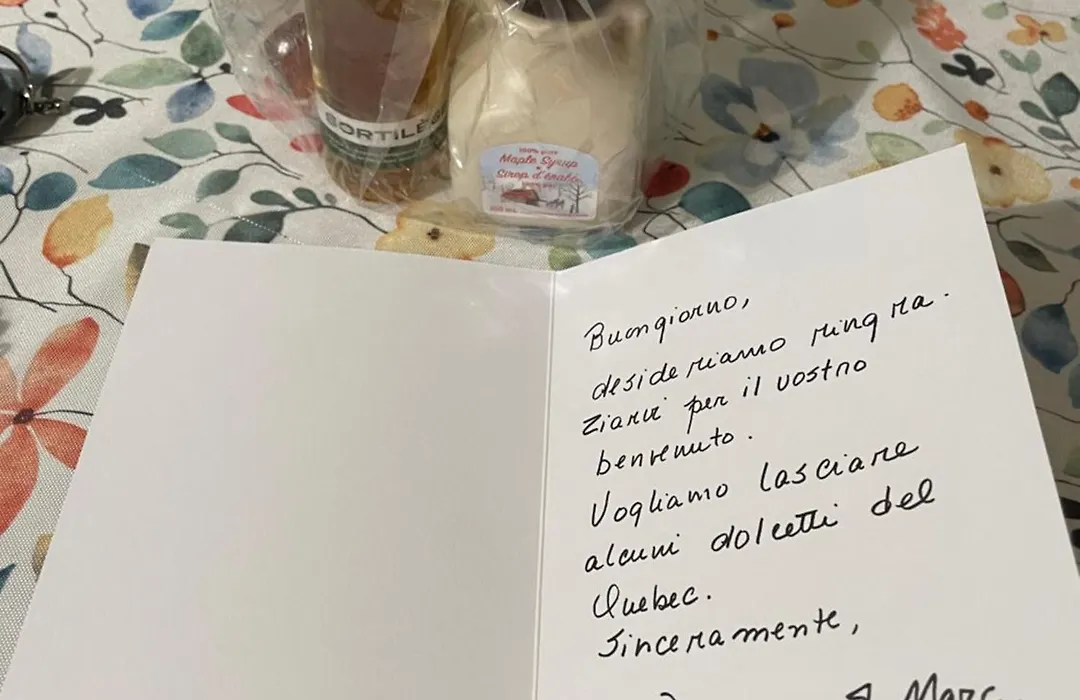 SORTILÈG
100% pure
Maple Syrup
Sirop d'érable
Buongiorno,
desideriamo ringra.
ziarvi per il vostro
benvenuto.
Vogliamo lasciare
alcuni dolcetti del
Quebec.
Sinceramente,
& Marc